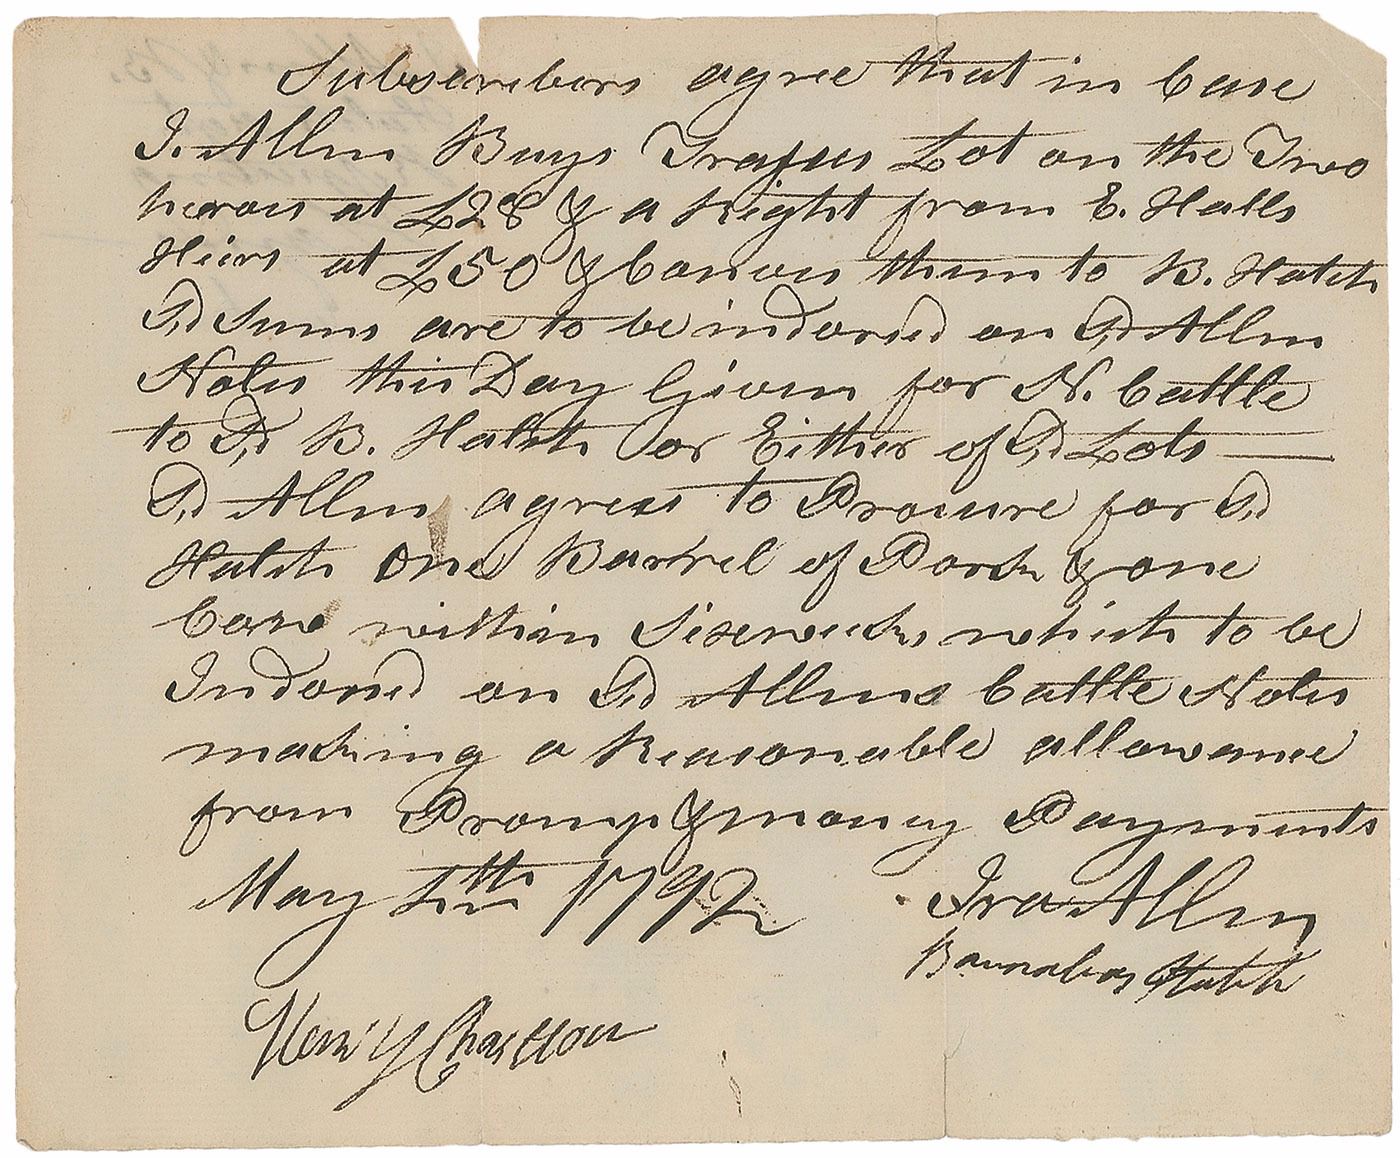 Subscribers agree that in Case
I. Allen Buys Trafus Lot on the Two
heroes at £28 & a Right from E. Halls
Heirs at £50 & Convey them to B. Hatch
Sd Sums are to be indorsed on Sd Allen
Notes this Day Given for N. Cattle
to Sd B. Hatch or Either of Sd Lots —
Sd Allen agrees to Procure for Sd
Hatch One Barrel of Pork & one
Cow within Six weeks which to be
Indorsed on Sd Allens Cattle Notes
making a Reasonable allowance
from Promp & money Payments
May 1792
Ira Allen
Barnabas Hatch
Henry